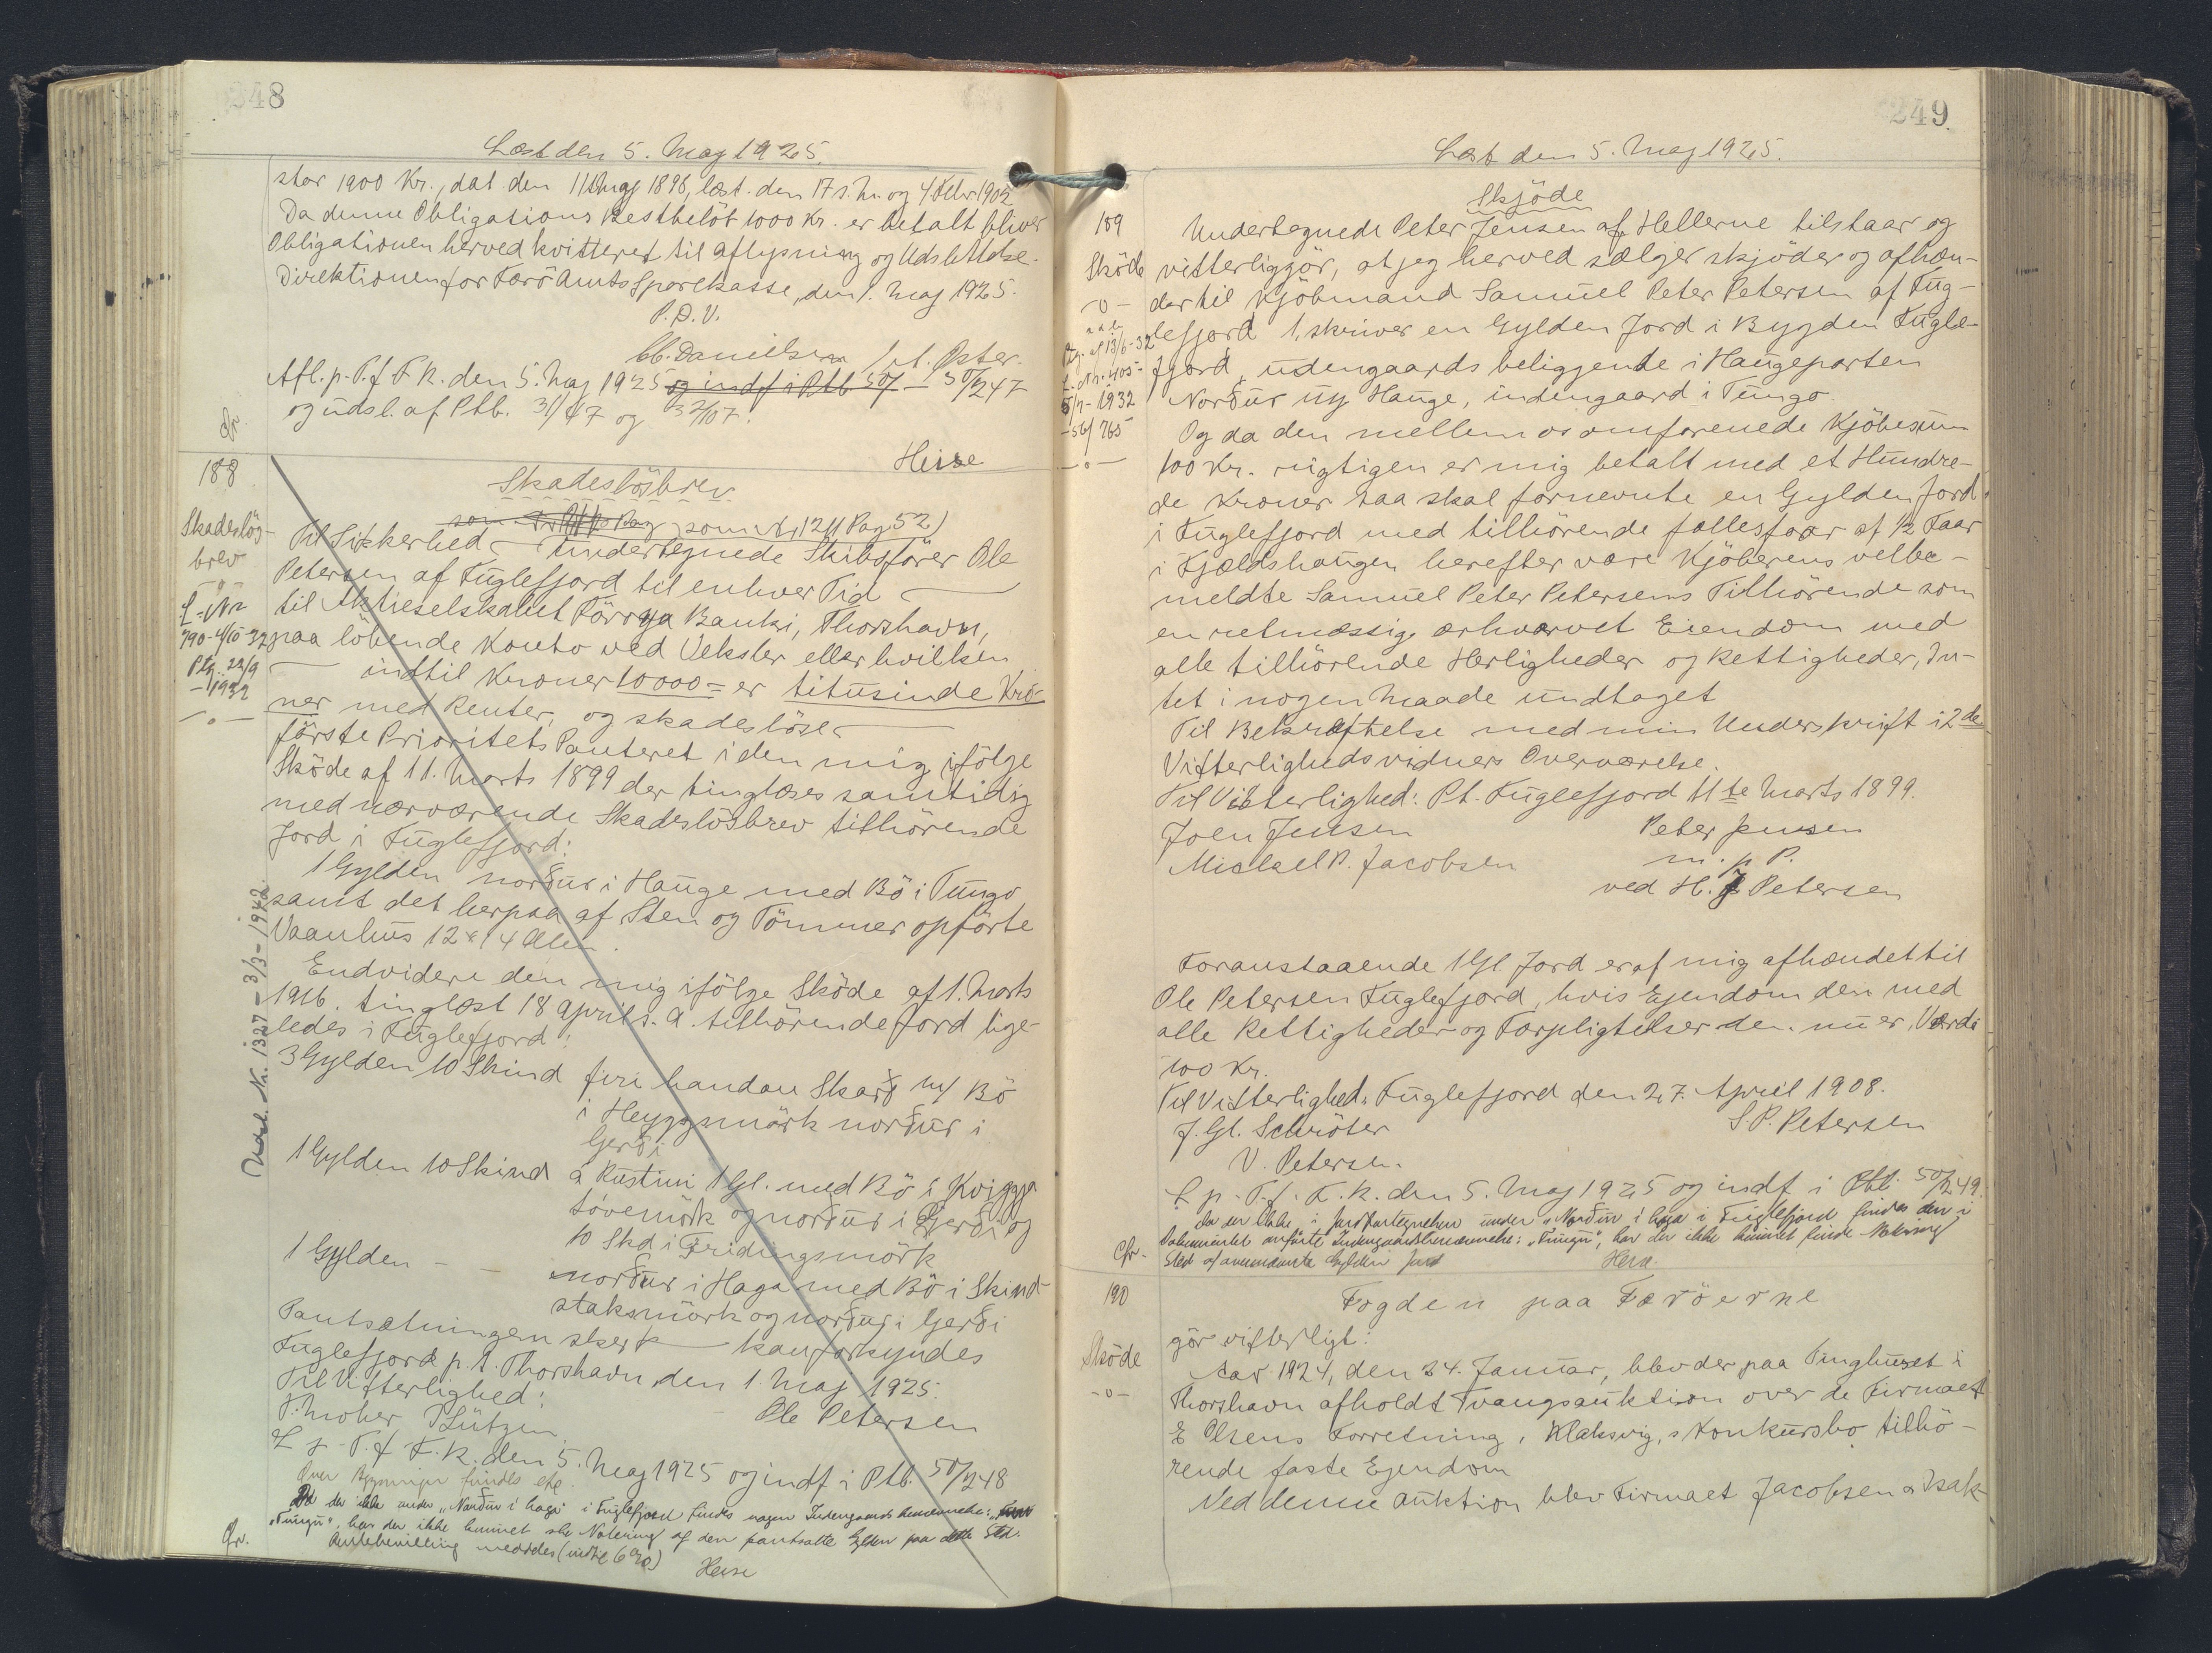 248
Læst den 5. Maj 1925.
stor 1900 Kr., dat. den 11 1898, læst. den 17 s. M. og 4 Febr 1902
Da denne Obligations Restbelöb 1000 Kr. er betalt bliver
Obligationen herved kvitteret til Aflysning og Udslettelse.
Direktionen for Færö Amts Sparekasse, den 1. Maj 1925.
P.D.V.
Danielsen
Afl. p. T. f. F. K. den 5. Maj 1925 og indf i Ptb 50/ 50/247
og udsl. af Ptb.
Heise
188
Skadeslösbrev
som Nr 1211 Pag 52)
Skadeslös-
brev
Til Sikkerhed undertegnede Skibsförer Ole
Petersen af Fuglefjord til enhver Tid
til Aktieselskabet Förroya Banki, Thorshavn,
L-Nr
790-4/10-32
Ptg. 22/9
1932
paa löbende Konto ved Veksler eller hvilken
indtil Kroner 10000 = er titusinde Kro-
ner med Renter, og skadeslöse
förste Prioritets Panteret i den mig ifölge
Sköde af 11. Marts 1899 der tinglæses samtidig
med nærværende Skadeslösbrev tilhörende
Jord i Fuglefjord:
1 Gylden norður i Hauge med Bö i Tungo
samt det herpaa af Sten og Tömmer opförte
Vaanhus 12 x 14 Alen.
Endvidere den mig ifölge Sköde af 1. Marts
1916. tinglæst 18 April s. A. tilhörende Jord lige-
ledes i Fuglefjord:
Nr. 1327 - 3/3 - 1942.
3 Gylden 10 Skind firi handan Skarð m/ Bö
i Heyggsmörk norður i
Gerði
1 Gylden 10 Skind á Rustini 1 Gl. med Bö i Kviggja
tóvemörk og norður i Gerði og
10 Skd i Fridingsmörk
1 Gylden - - norður i Haga med Bö i Skind-
staksmörk og norður i Gerði
Pantsætningen skerk kan forkyndes
Fuglefjord p. t. Thorshavn, den 1. Maj 1925.
Til Vitterlighed:
Ole Petersen
Lützen
L p. T. f. F. K. den 5. Maj 1925 og indf i Ptb. 50/248
findes ete
Da der ikke under „Norður i haga" i Fuglefjord findes nogen Indengaards benævnelse:
„Tungu", har der ikke kunnet ske Notering af den pantsatte Gylden paa dette Sted.
meddeles (indtil 6 %)
Heise
249
Læst den 5. Maj 1925.
Skjöde
189
Sköde
-o-
Undertegnede Peter Jensen af Hellerne tilstaar og
vitterliggör, at jeg herved sælger skjöder og afhæn-
der til Kjöbmand Samuel Peter Petersen af Fug-
lefjord 1, skriver en Gylden Jord i Bygden Fugle-
fjord, udengaards beliggende i Haugeparten
Norður uy Hauge, indengaard i Tungo.
1932
Og da den mellem os omforenede Kjöbesum
100 Kr. rigtigen er mig betalt med et Hundre-
de Kroner saa skal fornevnte en Gylden Jord
i Fuglefjord med tilhörende fællesfaar af 12 Faar
i Kjældshaugen herefter være Kjöberens velbe-
meldte Samuel Peter Petersens Tilhörende som
en retmæssig erhvervet Eiendom med
alle tilhörende Herligheder og Rettigheder, In-
tet i nogen Maade undtaget
Til Bekræftelse med min Underskrift i 2de
Vitterlighedsvidners Overværelse.
Til Vitterlighed: Pt. Fuglefjord 11te Marts 1899.
Joen Jensen Peter Jensen
Mickael P. Jacobsen m. p P.
ved H. J Petersen
Foranstaaende 1 Gl. Jord er af mig afhændet til
Ole Petersen Fuglefjord, hvis Ejendom den med
alle Rettigheder og Forpligtelser den. nu er, Værdi
100 Kr.
Til Vitterlighed. Fuglefjord den 27. April 1908.
J. Gl. Schröter S P. Petersen
V. Petersen.
L p. T. f. F. K. den 5. Maj 1925 og indf i Ptb. 50/249.
Da der ikke i Jordfortegnelsen under „Norður i haga i Fuglefjord findes den i
Dokumentet anförte Indengaardsbenævnelse: „Tungu", har der ikke kunnet finde Notering
Sted af ommeldte Gylden Jord Heise.
190
Sköde
-o-
Fogden paa Færöerne
gör vitterligt:
Aar 1924, den 24. Januar, blev der paa Tinghuset i
Thorshavn afholdt Tvangsauktion over de Firmaet
E Olsens Forretning, Klaksvig, s Konkursbo tilhö-
rende faste Ejendom
Ved denne Auktion blev Firmaet Jacobsen & Isak-